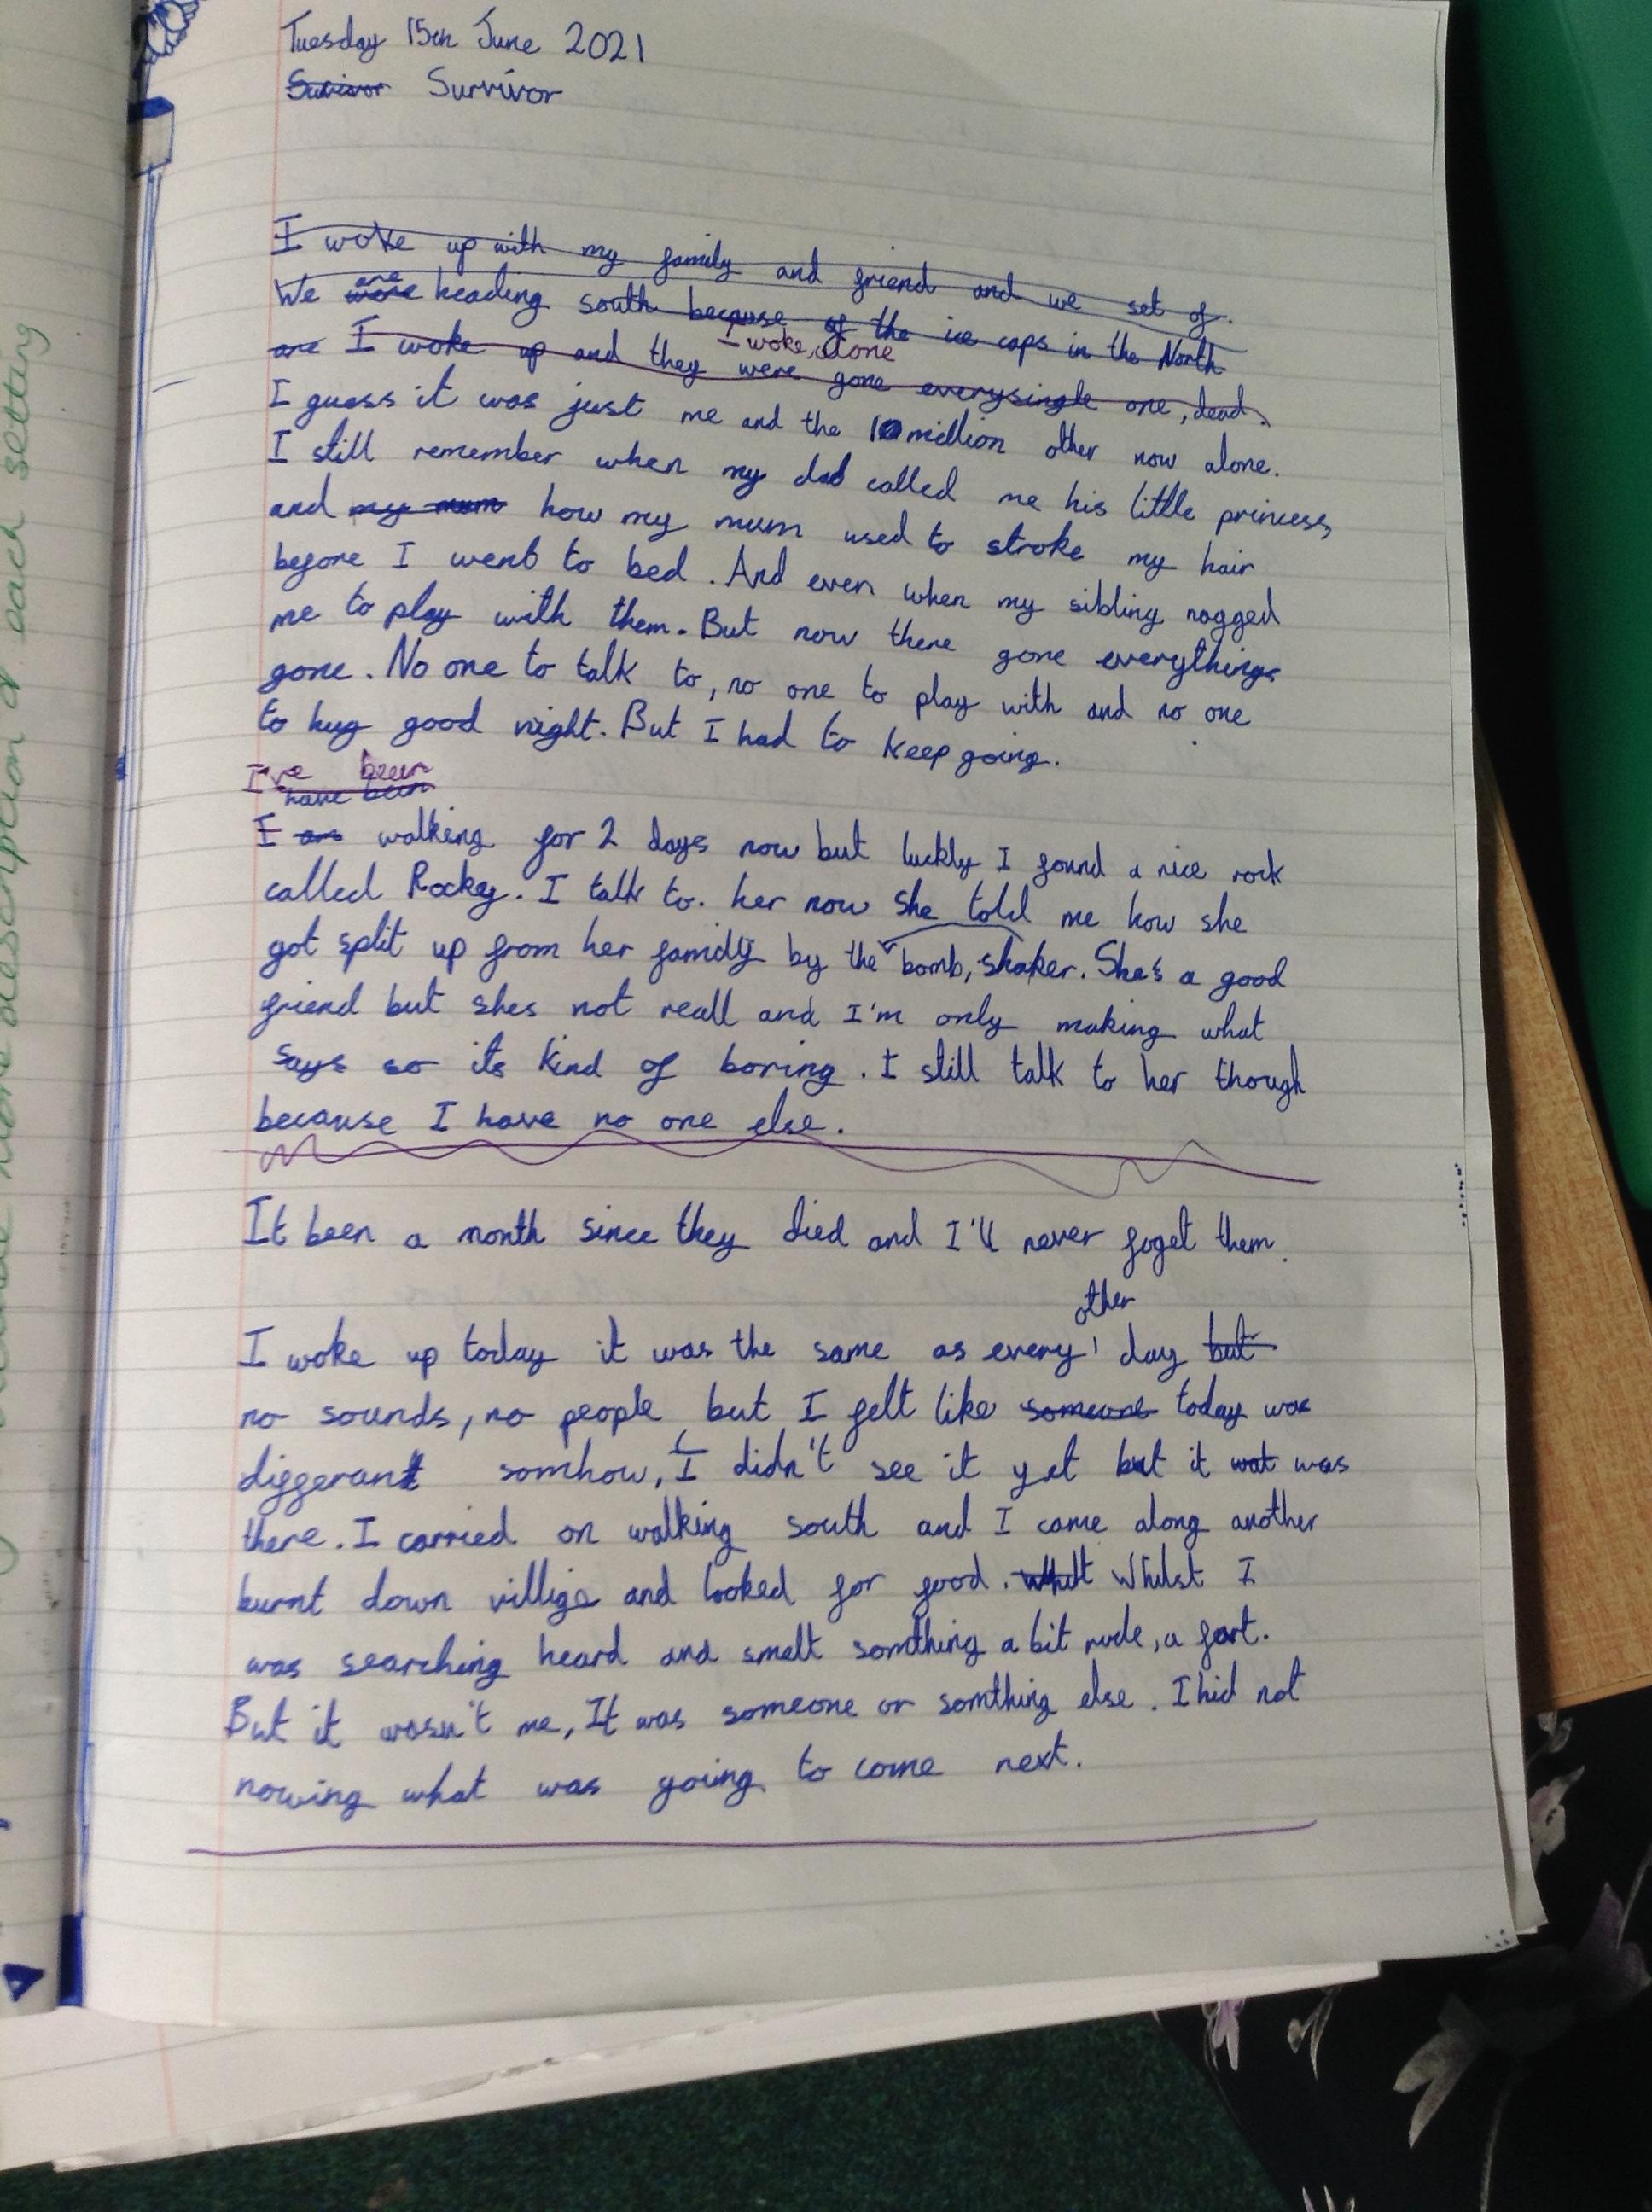 Tuesday 15th June 2021
Suvivor Survivor
I woke up with my family and friend and we set of.
We were are heading south because of the ice caps in the North
are I woke up and they were gone everysingle one, dead.
I woke, alone
I guess it was just me and the 10 million other now alone.
I still remember when my dad called me his little princess,
and my mum how my mum used to stroke my hair
before I went to bed. And even when my sibling nagged
me to play with them. But now there gone everythings
gone. No one to talk to, no one to play with and no one
to hug good night. But I had to keep going.
I've been
have been
I am walking for 2 days now but luckly I found a nice rock
called Rockey. I talk to. her now she told me how she
got split up from her family by the bomb, shaker. She's a good
friend but shes not reall and I'm only making what
says so its kind of boring. I still talk to her though
because I have no one else.
It been a month since they died and I'll never foget them.
other
I woke up today it was the same as every day but
no sounds, no people but I felt like someone today was
differant somhow, I didn't see it yet but it wat was
there. I carried on walking south and I came along another
burnt down villige and looked for food. Whilst I
was searching heard and smelt somthing a bit rude, a fart.
But it wasn't me, It was someone or somthing else. I hid not
nowing what was going to come next.
each setting